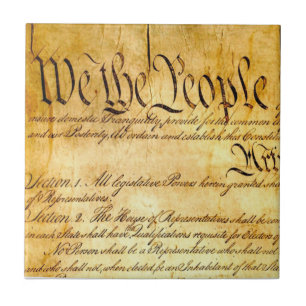 We the People
insure domestic Tranquility, provide for the common
and our Posterity, do ordain and establish this Constit
Arti
Section. 1. All legislative Powers herein granted shal
of Representatives.
Section. 2. The House of Representatives shall be com
in each State shall have Qualifications requisite for Electors of
No Person shall be a Representative who shall not
and who shall not, when elected, be an Inhabitant of that State